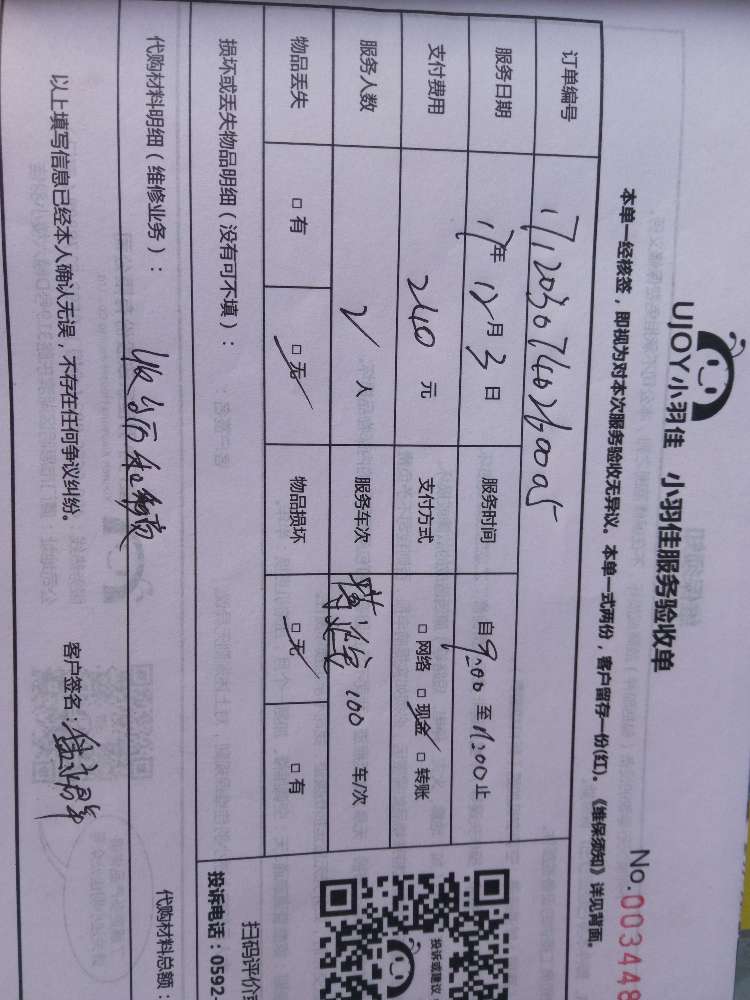 UJOY小羽佳 小羽佳服务验收单
No.003448
本单一经核签，即视为对本次服务验收无异议。本单一式两份，客户留存一份(红)。《维保须知》详见背面。
订单编号 1712030740260005
服务日期 17年 12月 3日 服务时间 自9:00 至11:00止
支付费用 240 元 支付方式 □网络 □现金 □转账
服务人数 2 人 服务车次 100 车/次
物品丢失 □有 □无 物品损坏 □无 □有
损坏或丢失物品明细（没有可不填）：
代购材料明细（维修业务）：
代购材料总额：
以上填写信息已经本人确认无误，不存在任何争议纠纷。
客户签名：
投诉或建议
扫码评价
投诉电话：0592-